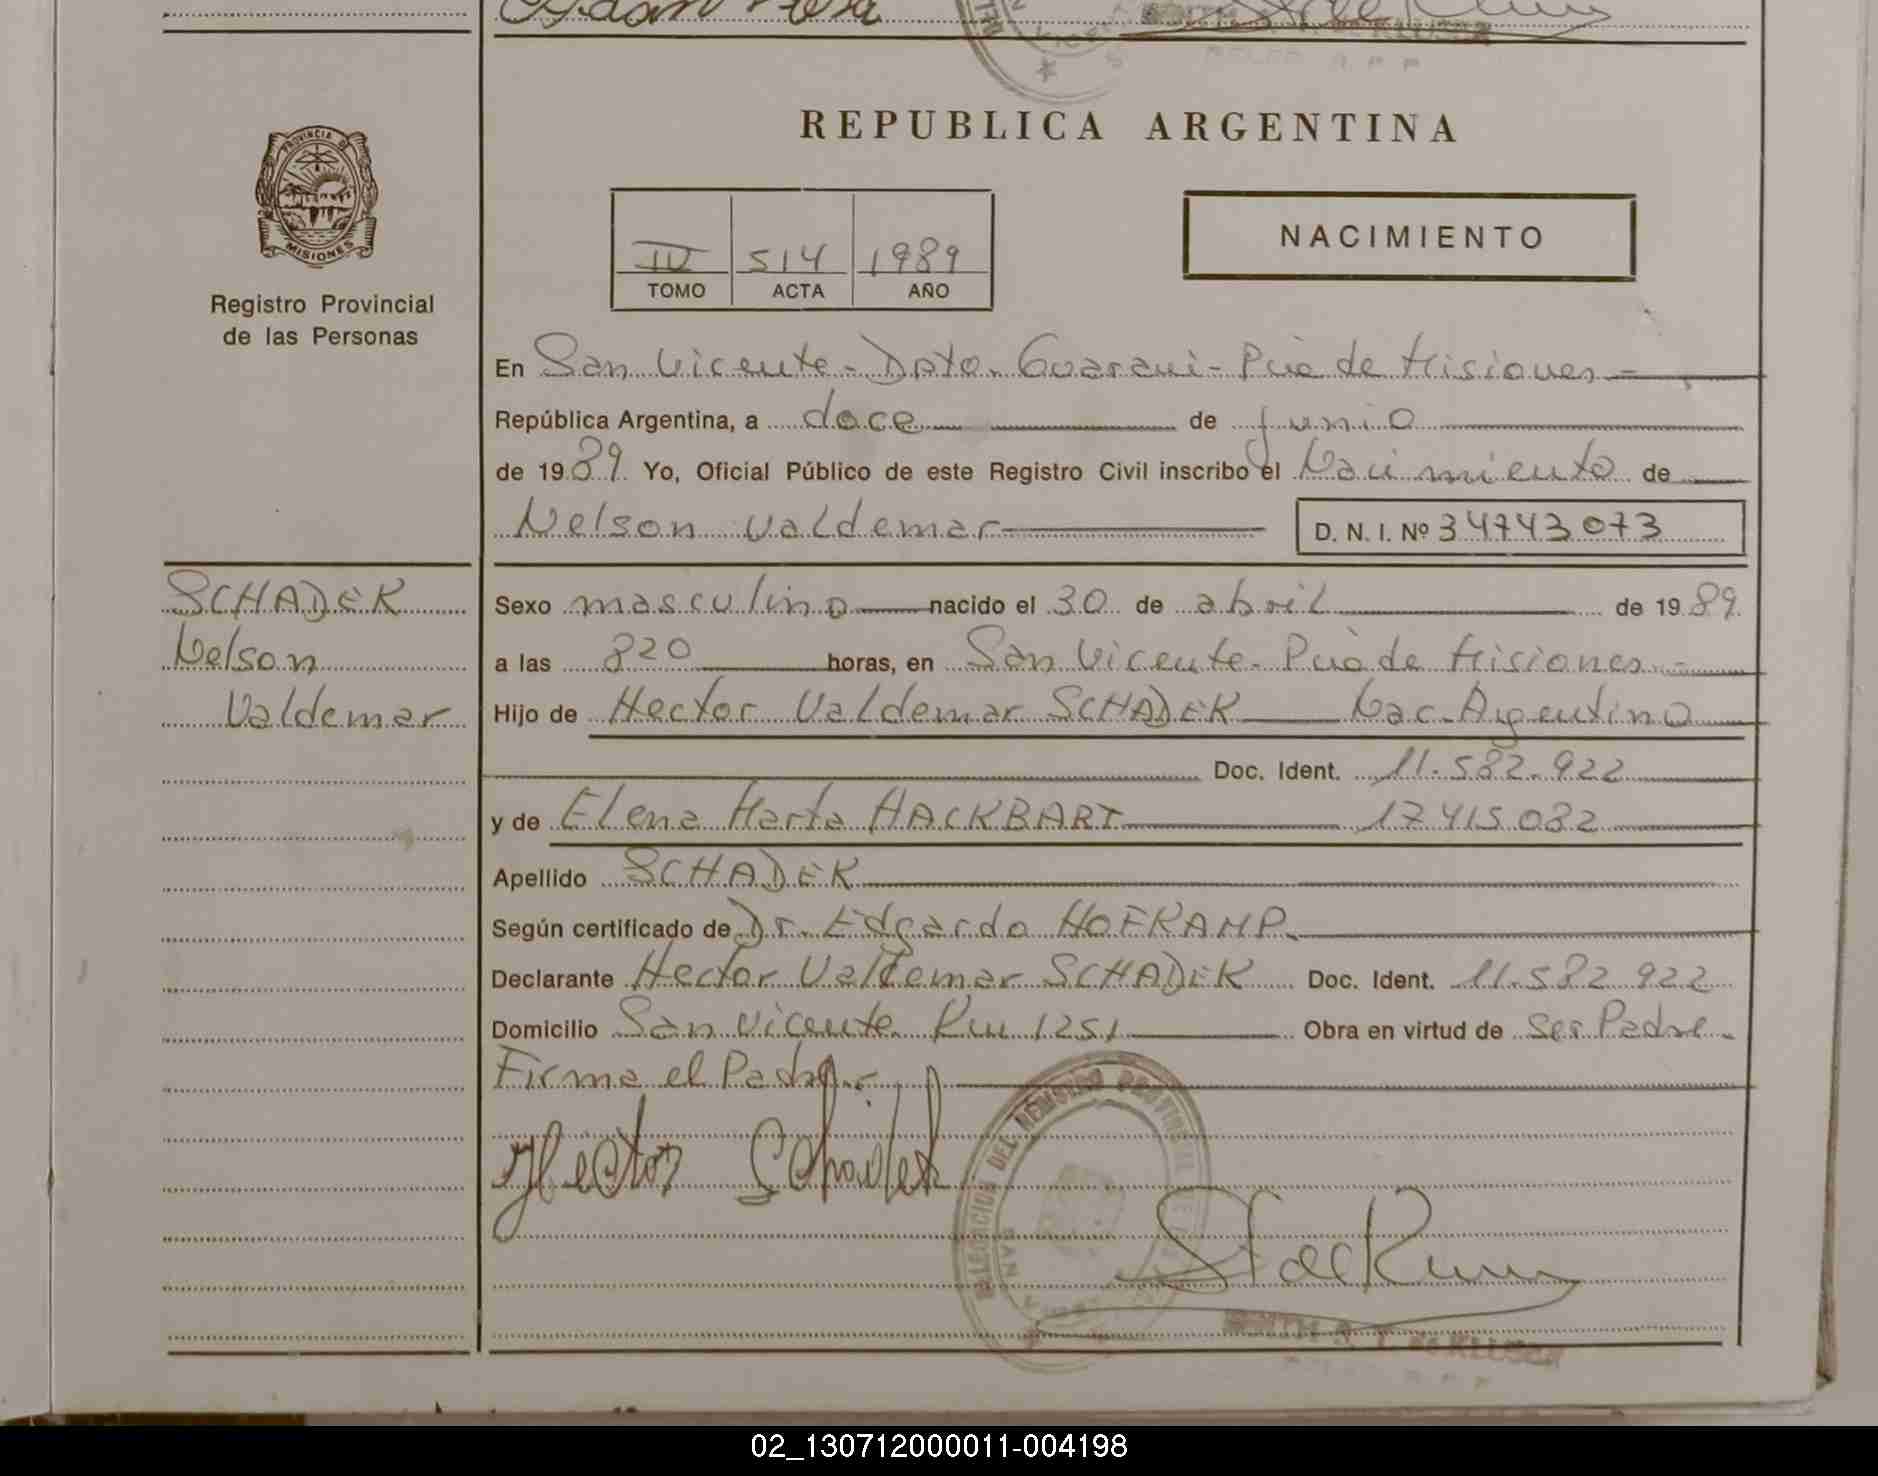 REPUBLICA ARGENTINA
PROVINCIA DE
MISIONES
Registro Provincial
de las Personas
IV 514 1989
TOMO ACTA AÑO
NACIMIENTO
En San Vicente - Dpto. Guarani - Pcia de Misiones -
República Argentina, a doce de junio
de 1989. Yo, Oficial Público de este Registro Civil inscribo el Nacimiento de
Nelson Valdemar D. N. I. Nº 34743073
SCHADEK
Nelson
Valdemar
Sexo masculino nacido el 30 de abril de 1989.
a las 820 horas, en San Vicente - Pcia de Misiones -
Hijo de Hector Valdemar SCHADEK Nac. Argentino
Doc. Ident. 11.582.922
y de Elena Marta HACKBART 17415032
Apellido SCHADEK
Según certificado de Dr. Edgardo HOFKAMP.
Declarante Hector Valdemar SCHADEK Doc. Ident. 11.582.922
Domicilio San Vicente Km 1251 Obra en virtud de Ser Padre
Firma el Padre.-
Hector Schadek
DELEGACION DEL REGISTRO PROVINCIAL DE
SAN
VICENTE
de KLUSKA
02_130712000011-004198